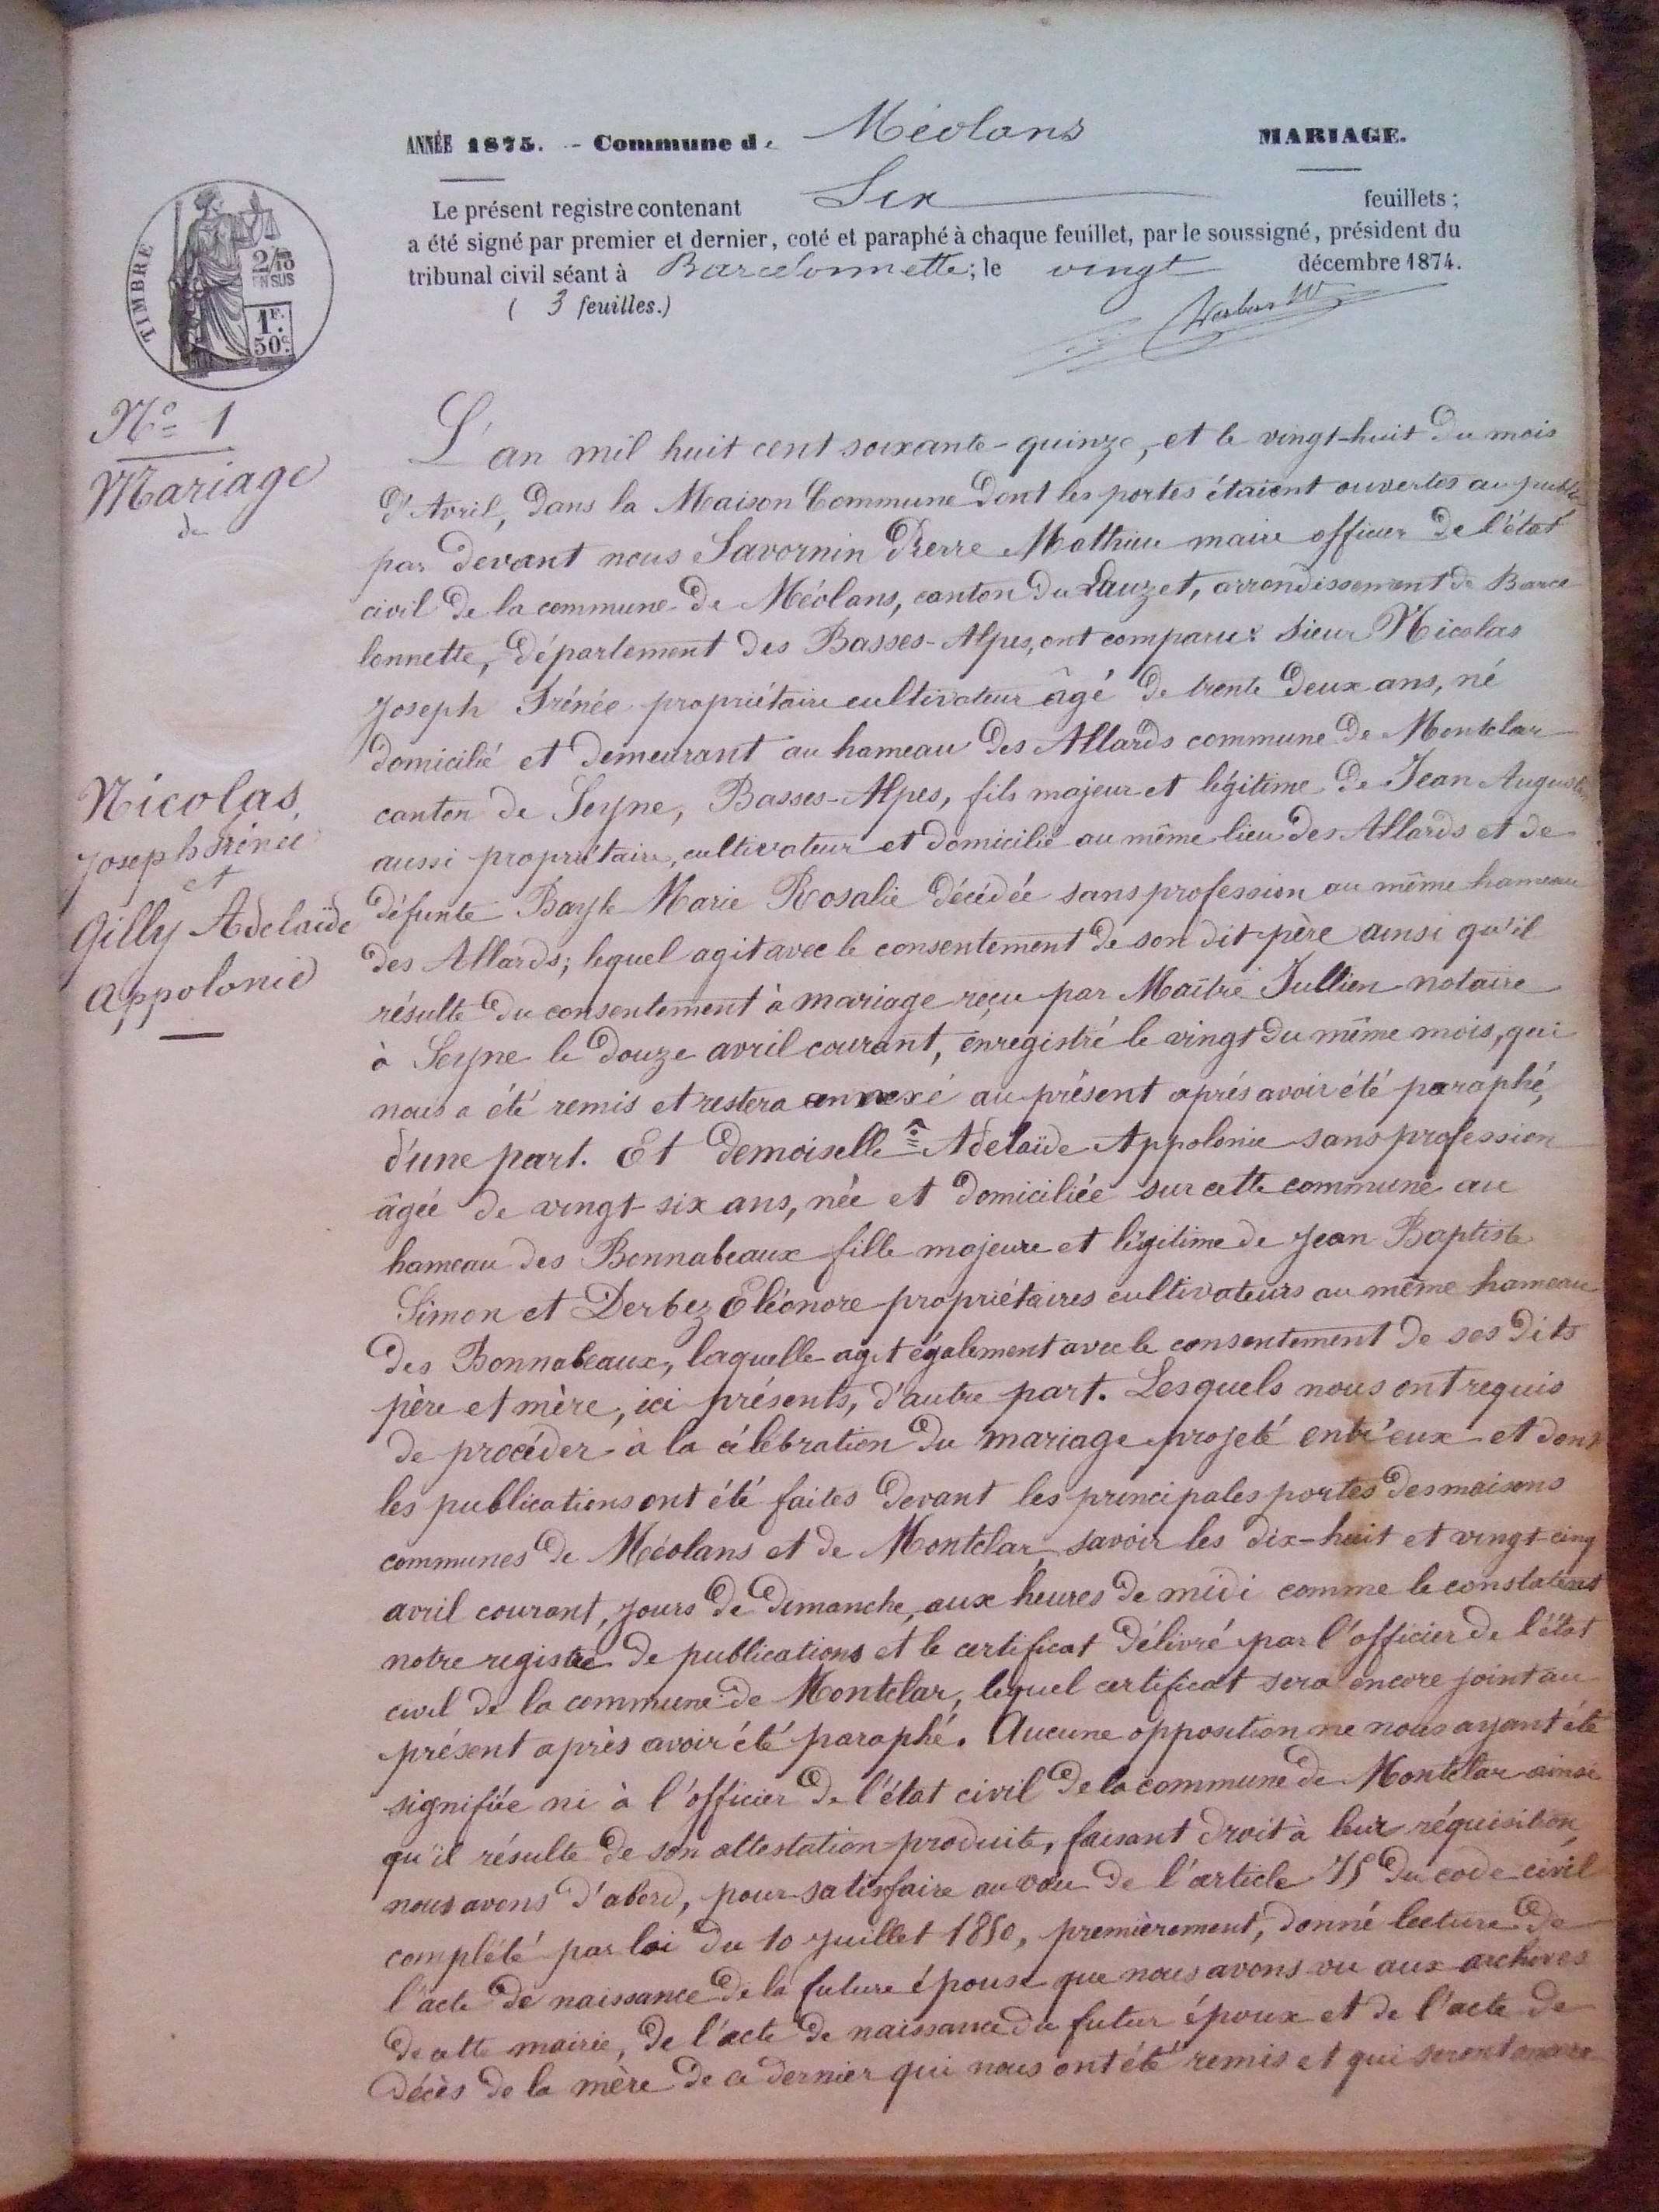 ANNÉE 1875. - Commune de Méolans MARIAGE.
Le présent registre contenant Six feuillets ;
a été signé par premier et dernier, coté et paraphé à chaque feuillet, par le soussigné, président du
tribunal civil séant à Barcelonnette ; le vingt décembre 1874.
( 3 feuilles.)
TIMBRE
2/10
EN SUS
1F.
50c.
No 1
Mariage
de
Nicolas,
Joseph Irénée
et
Gilly Adelaïde
Appolonie
L'an mil huit cent soixante-quinze, et le vingt-huit du mois
d'Avril, dans la Maison Commune dont les portes étaient ouvertes au public
par devant nous Savornin Pierre Mathieu maire officier de l'état
civil de la commune de Méolans, canton du Lauzet, arrondissement de Barce
lonnette, département des Basses-Alpes, ont comparu : sieur Nicolas
Joseph Irénée propriétaire cultivateur âgé de trente deux ans, né
domicilié et demeurant au hameau des Allards commune de Montclar
canton de Seyne, Basses-Alpes, fils majeur et légitime de Jean Augustin
aussi propriétaire, cultivateur et domicilié au même lieu des Allards et de
défunte Bayle Marie Rosalie décédée sans profession au même hameau
des Allards ; lequel agit avec le consentement de son dit père ainsi qu'il
résulte du consentement à mariage reçu par Maître Jullien notaire
à Seyne le douze avril courant, enregistré le vingt du même mois, qui
nous a été remis et restera annexé au présent après avoir été paraphé,
d'une part. Et demoiselle Adelaïde Appolonie sans profession
âgée de vingt-six ans, née et domiciliée sur cette commune au
hameau des Bonnabeaux fille majeure et légitime de Jean Baptiste
Simon et Derbez Eléonore propriétaires cultivateurs au même hameau
des Bonnabeaux, laquelle agit également avec le consentement de ses dits
père et mère, ici présents, d'autre part. Lesquels nous ont requis
de procéder à la célébration du mariage projeté entr'eux et dont
les publications ont été faites devant les principales portes des maisons
communes de Méolans et de Montclar, savoir les dix-huit et vingt-cinq
avril courant, jours de dimanche, aux heures de midi comme le constatent
notre registre de publications et le certificat délivré par l'officier de l'état
civil de la commune de Montclar, lequel certificat sera encore joint au
présent après avoir été paraphé. Aucune opposition ne nous ayant été
signifiée ni à l'officier de l'état civil de la commune de Montclar ainsi
qu'il résulte de son attestation produite, faisant droit à leur réquisition,
nous avons d'abord, pour satisfaire au vœu de l'article 75 du code civil
complété par loi du 10 juillet 1850, premièrement, donné lecture de
l'acte de naissance de la future épouse que nous avons vu aux archives
de cette mairie, de l'acte de naissance du futur époux et de l'acte de
décès de la mère de ce dernier qui nous ont été remis et qui seront encore